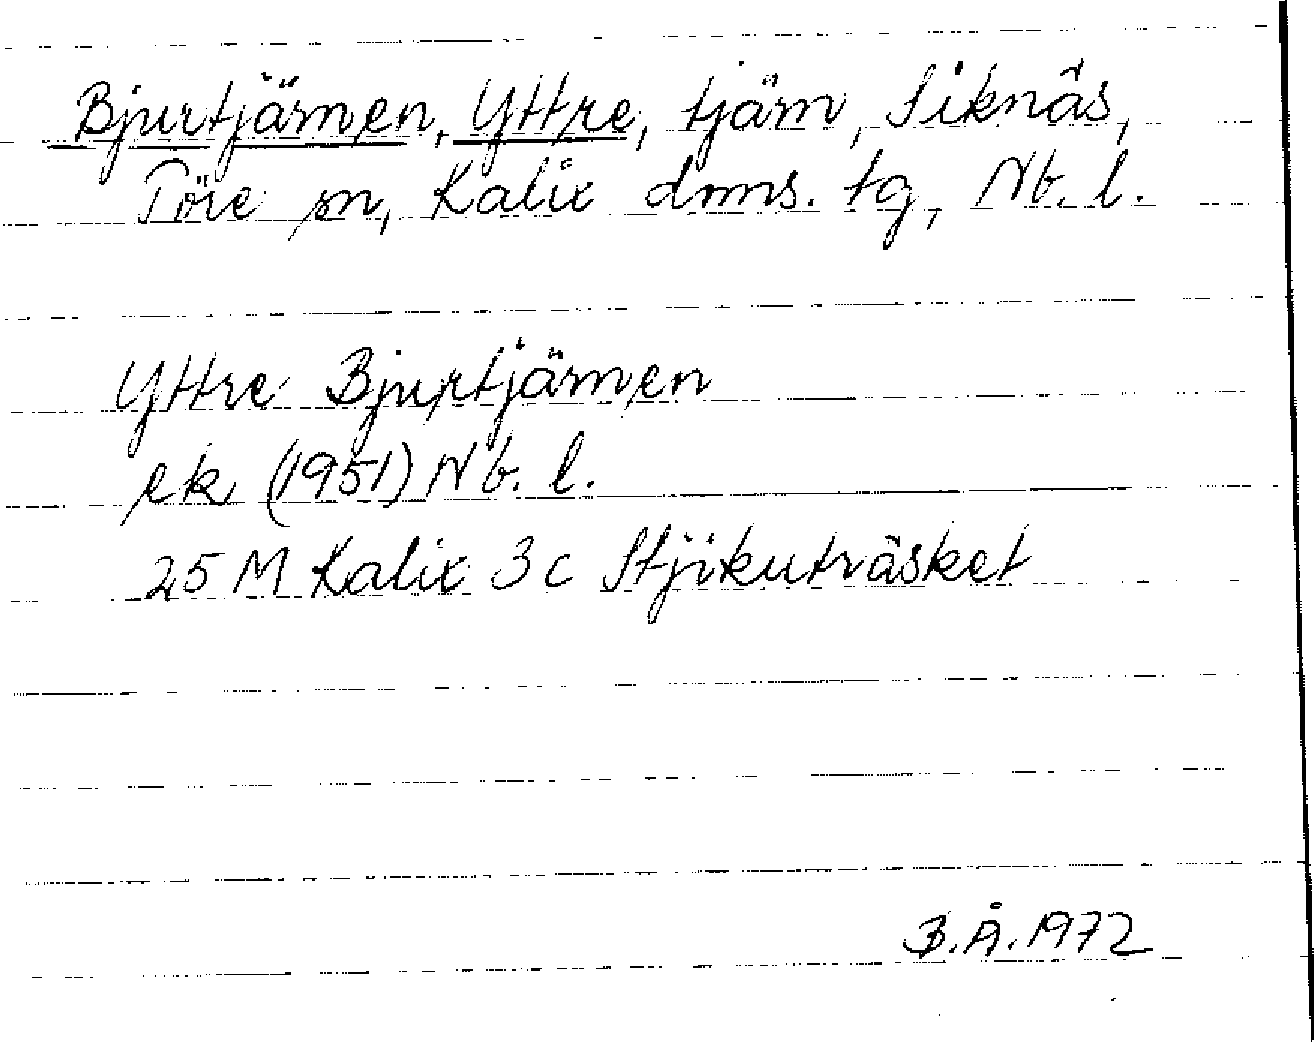 Bjurtjärnen, Yttre, tjärn, Siknäs,
Töre sn, Kalix dms. tg, Nb. l.
Yttre Bjurtjärnen
ek (1951) Nb. l.
25 M Kalix 3c Stjikuträsket
B.Å. 1972